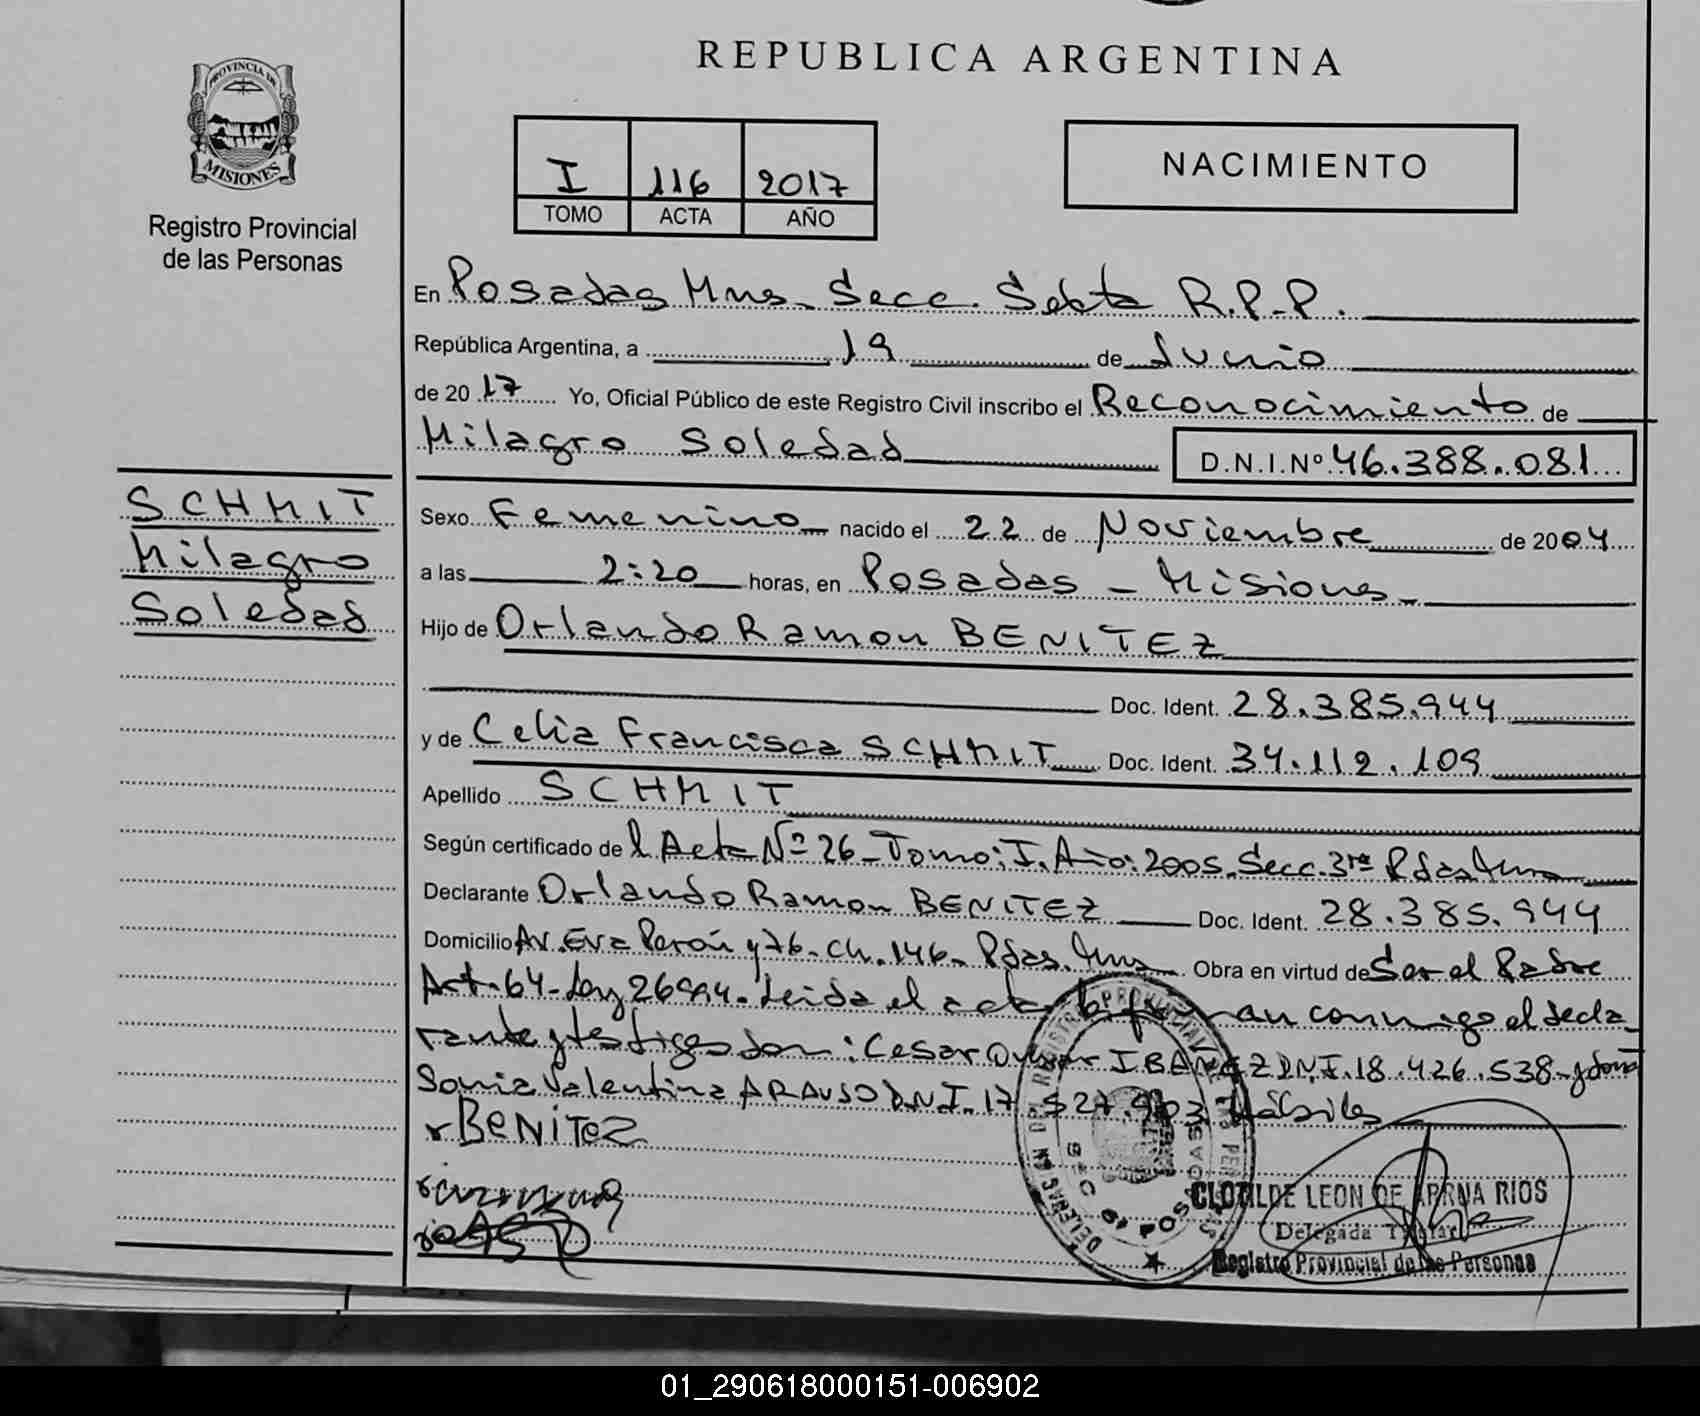 REPUBLICA ARGENTINA
PROVINCIA DE
MISIONES
Registro Provincial
de las Personas
I 116 2017
TOMO ACTA AÑO
NACIMIENTO
En Posadas Mnes. Secc. Sexta R.P.P.
República Argentina, a 19 de Junio
de 2017 Yo, Oficial Público de este Registro Civil inscribo el Reconocimiento de
Milagro Soledad D.N.I.Nº 46.388.081
SCHMIT
Milagro
Soledad
Sexo Femenino nacido el 22 de Noviembre de 2004
a las 2:20 horas, en Posadas - Misiones
Hijo de Orlando Ramon BENITEZ
Doc. Ident. 28.385.944
y de Celia Francisca SCHMIT Doc. Ident. 34.112.109
Apellido SCHMIT
Según certificado de l Acta Nº 26 - Tomo: I. Año: 2005. Secc. 3ra Pdas Mnes
Declarante Orlando Ramon BENITEZ Doc. Ident. 28.385.944
Domicilio Av. Eva Perón y 76 - Ch. 146 - Pdas. Mnes Obra en virtud de Ser el Padre
Art. 64 - Ley 26994. Leida el acta la firman conmigo el decla
rante y testigos don: Cesar Omar IBAÑEZ DNI. 18.426.538 - y doña
Sonia Valentina ARAUJO DNI. 17. Hábiles
BENITEZ
CLOTILDE LEON DE ARRUA RIOS
Delegada Titular
Registro Provincial de las Personas
01_290618000151-006902